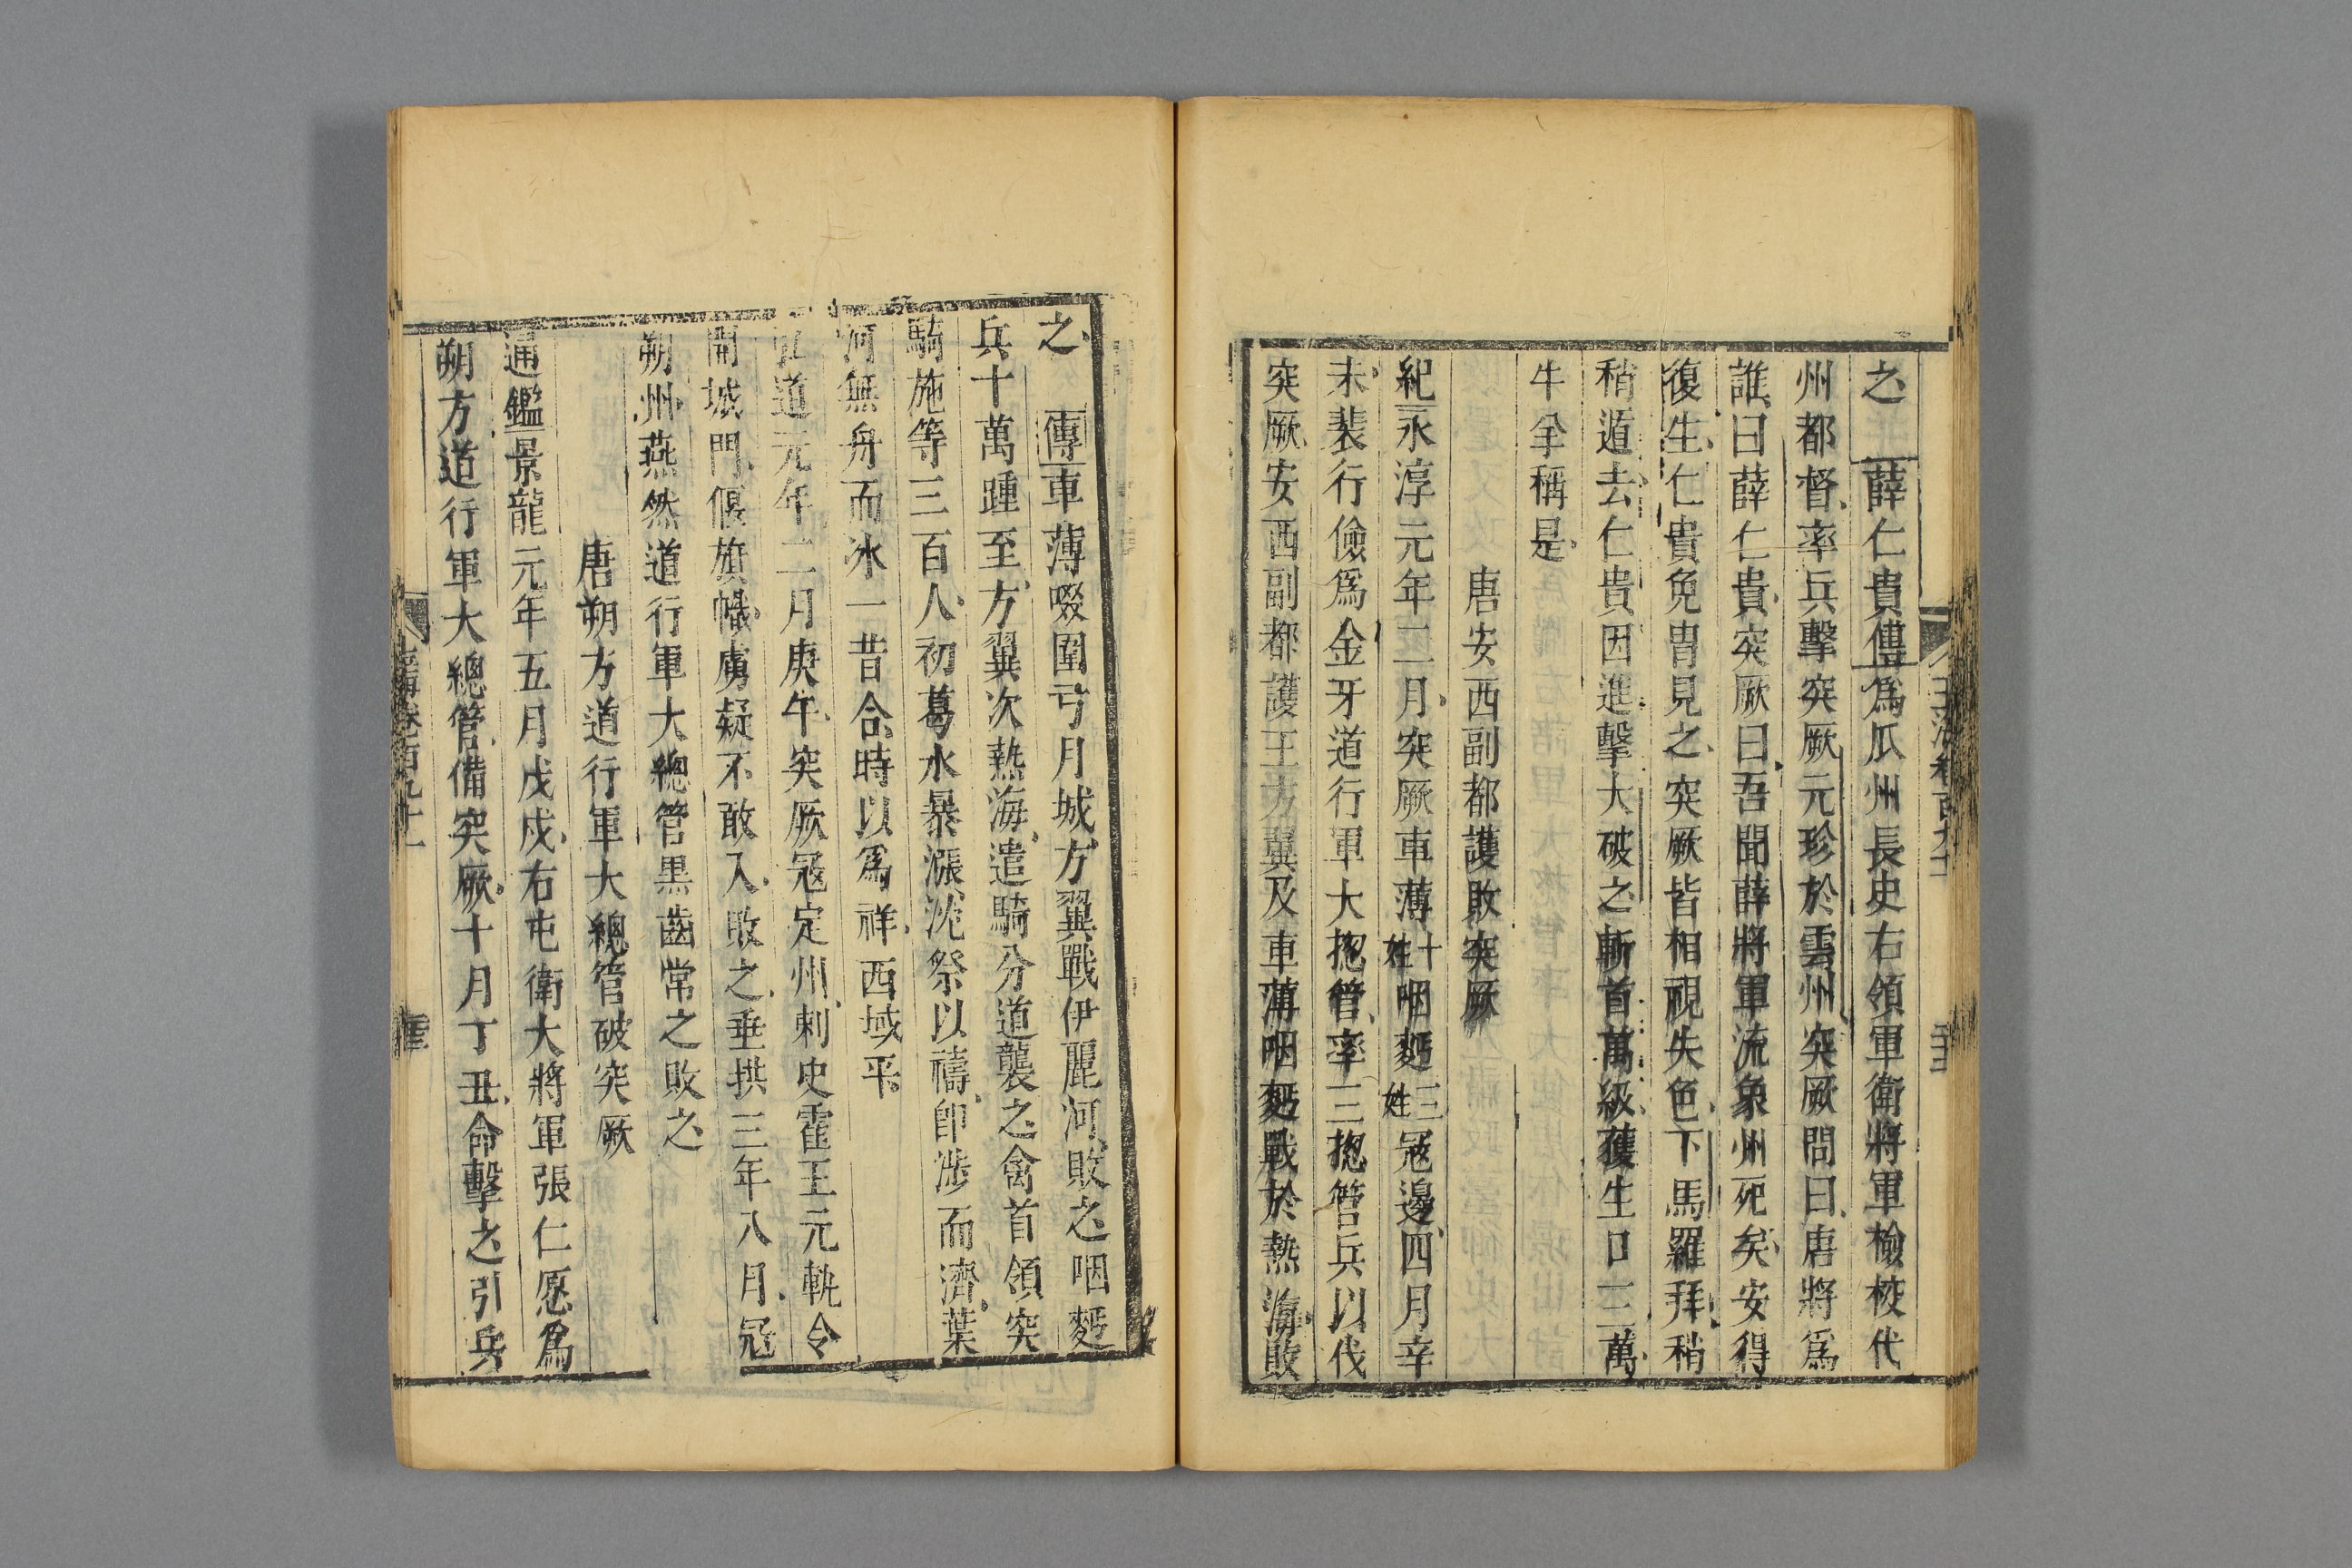 之 薛仁貴傳爲瓜州長史右領軍衛將軍檢校代
州都督率兵擊突厥元珍於雲州突厥問曰唐將爲
誰曰薛仁貴突厥曰吾聞薛將軍流象州死矣安得
復生仁貴免冑見之突厥皆相視失色下馬羅拜稍
稍遁去仁貴因進擊大破之斬首萬級獲生口三萬
牛羊稱是
唐安西副都護敗突厥
紀永淳元年二月突厥車薄十姓咽麪三姓寇邊四月辛
未裴行儉爲金牙道行軍大揔管率三揔管兵以伐
突厥安西副都護王方翼及車薄咽麪戰於熱海敗
之 傳車薄啜圍弓月城方翼戰伊麗河敗之咽麪
兵十萬踵至方翼次熱海遣騎分道襲之禽首領突
騎施等三百人初葛水暴漲沈祭以禱卽涉而濟葉
河無舟而冰一昔合時以爲祥西域平
弘道元年二月庚午突厥寇定州刺史霍王元軌令
開城門偃旗幟虜疑不敢入敗之垂拱三年八月寇
朔州燕然道行軍大總管黑齒常之敗之
唐朔方道行軍大總管破突厥
通鑑景龍元年五月戊戌右屯衛大將軍張仁愿爲
朔方道行軍大總管備突厥十月丁丑命擊之引兵